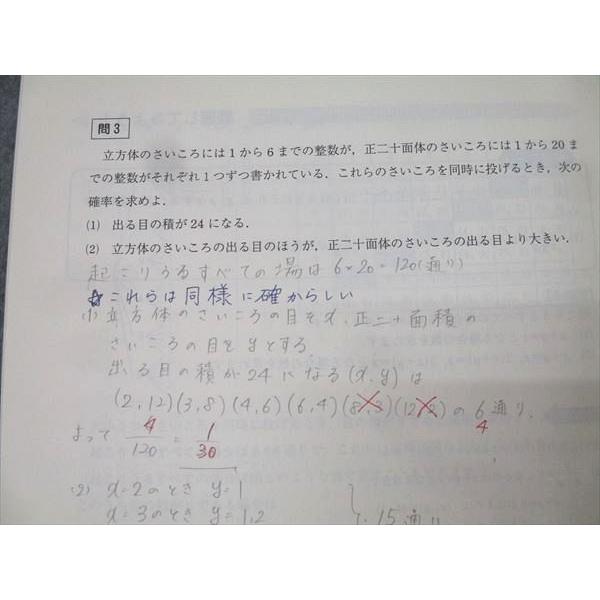 問3
立方体のさいころには1から6までの整数が，正二十面体のさいころには1から20ま
での整数がそれぞれ1つずつ書かれている．これらのさいころを同時に投げるとき，次の
確率を求めよ．
(1) 出る目の積が24になる．
(2) 立方体のさいころの出る目のほうが，正二十面体のさいころの出る目より大きい．
起こりうるすべての場は 6×20=120(通り)
☆これらは同様に確からしい
(1) 立方体のさいころの目をx、正二十面積の
さいころの目をyとする
出る目の積が24になる(x,y)は
(2,12)(3,8)(4,6)(6,4)(8,3)(12,2)の6通り．
4
よって 4/120 = 1/30
(2) x=2のとき y=1
x=3のとき y=1,2
15通り